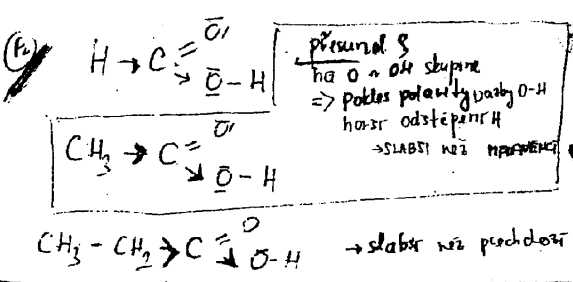 H → C = O
→ O - H
přesun el. ρ
na O v OH skupině
=> pokles polarity vazby O-H
horší odštěpení H
→ SLABŠÍ NEŽ
CH3 → C = O
→ O - H
CH3 - CH2 → C = O
→ O - H → slabší než předchozí